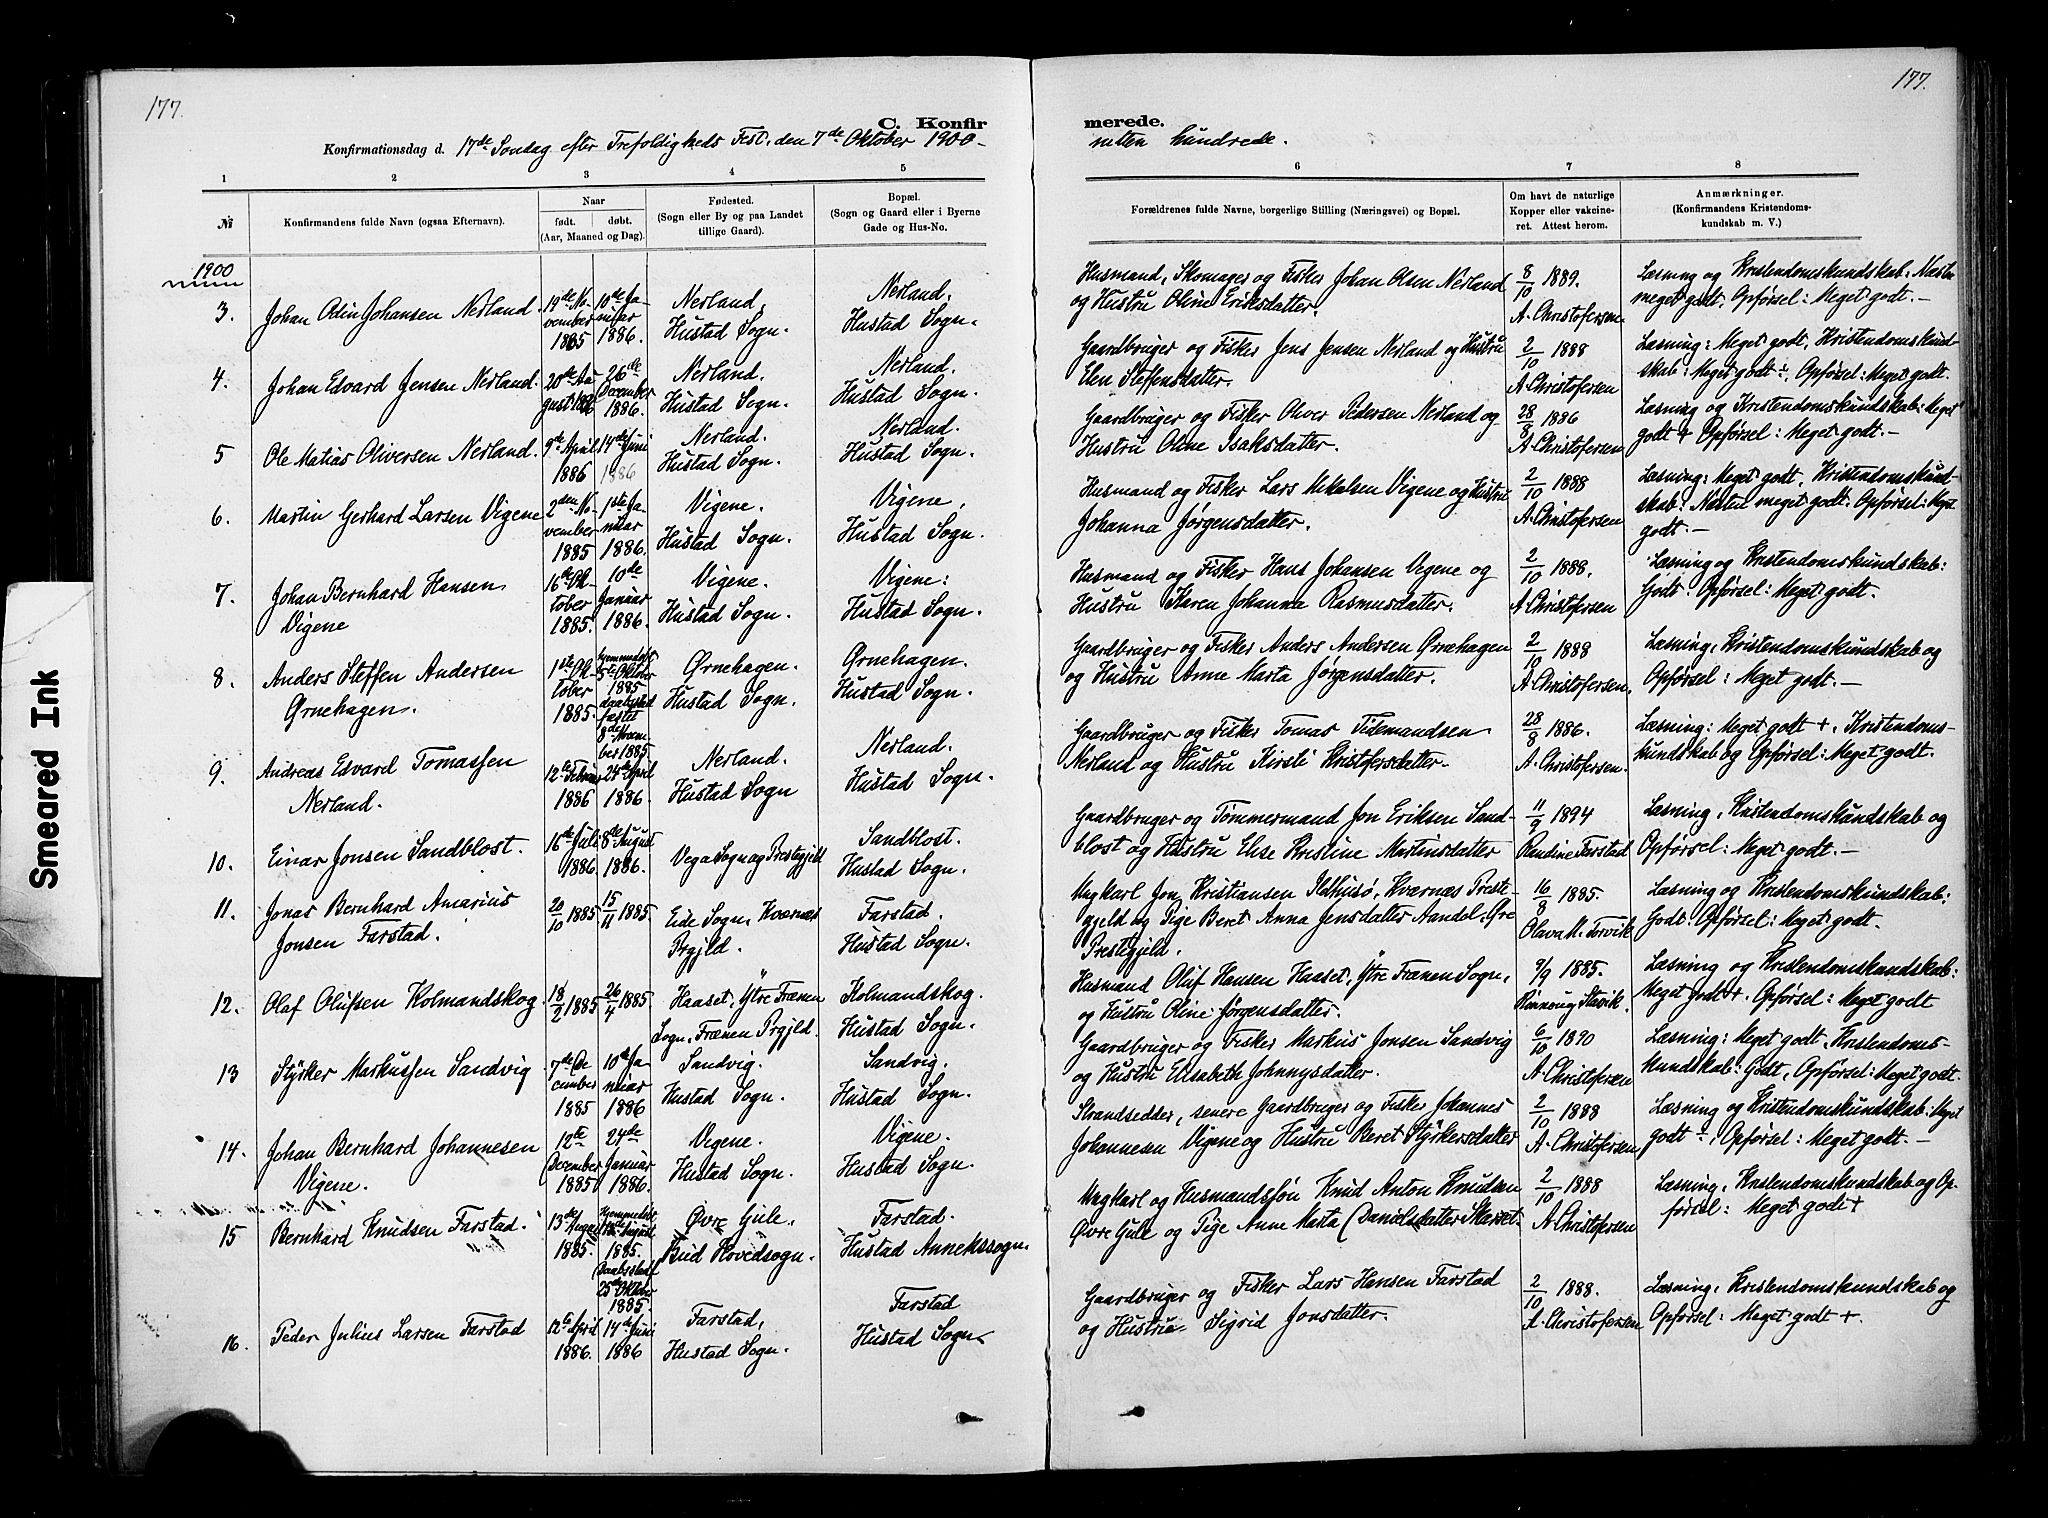 177.
C. Konfir
Konfirmationsdag d. 17de Søndag efter Trefoldigheds Fest, den 7de Oktober 1900 -
1 2 3 4 5
№
Konfirmandens fulde Navn (ogsaa Efternavn).
Naar
født. døbt.
(Aar, Maaned og Dag).
Fødested.
(Sogn eller By og paa Landet
tillige Gaard).
Bopæl.
(Sogn og Gaard eller i Byerne
Gade og Hus-No.
1900
3. Johan Odin Johansen Nerland.
19de No-
vember
1885
10de Ja-
nuar
1886.
Nerland,
Hustad Sogn.
Nerland.
Hustad Sogn.
4. Johan Edvard Jensen Nerland.
20de Au-
gust 1886
26de
December
1886.
Nerland.
Hustad Sogn.
Nerland.
Hustad Sogn.
5 Ole Matias Oliversen Nerland.
9de April
1886
14de Juni
1886
Nerland.
Hustad Sogn.
Nerland.
Hustad Sogn.
6. Martin Gerhard Larsen Vigene
2den No-
vember
1885
1ste Ja-
nuar
1886.
Vigene.
Hustad Sogn.
Vigene,
Hustad Sogn.
7. Johan Bernhard Hansen
Vigene
16de Ok-
tober
1885.
10de
Januar
1886.
Vigene.
Hustad Sogn.
Vigene:
Hustad Sogn.
8. Anders Steffen Andersen
Ørnehagen.
1ste Ok-
tober
1885.
hjemmedøbt
5te Oktober
1885
daabsstad
fæstet
8de Novem-
ber 1885
Ørnehagen.
Hustad Sogn.
Ørnehagen.
Hustad Sogn.
9. Andreas Edvard Tomassen
Nerland.
12te Febru
1886
24de April
1886.
Nerland.
Hustad Sogn
Nerland.
Hustad Sogn.
10. Einar Jonsen Sandblost.
16de Juli
1886.
8de August
1886.
Vega Sogn og Prestegjeld
Sandblost.
Hustad Sogn.
11. Jonas Bernhard Amarius
Jonsen Farstad.
20/10 1885
15/11 1885
Eide Sogn, Kvernæs
Prgjld.
Farstad.
Hustad Sogn.
12. Olaf Olufsen Kolmandskog.
18/2 1885
26/4 1885
Haaset, Ytre Frænen
Sogn, Frænen Prgjld.
Kolmandskog.
Hustad Sogn.
13 Styrker Markussen Sandvig
7de De
cember
1885
10de Ja-
nuar
1886
Sandvig.
Hustad Sogn.
Sandvig.
Hustad Sogn.
14. Johan Bernhard Johannesen
Vigene.
12te
December
1885
24de
Januar
1886.
Vigene.
Hustad Sogn.
Vigene.
Hustad Sogn.
15 Bernhard Knudsen Farstad.
13de August
1885.
1885.
25de Oktober
1885.
Øvre Gule.
Bud Hovedsogn.
Farstad.
Hustad Annekssogn.
16. Peder Julius Larsen Farstad
12te April
1886.
14de Juni
1886
Farstad,
Hustad Sogn.
Farstad
Hustad Sogn
177.
merede.
nitten hundrede.
6 7 8
Forældrenes fulde Navne, borgerlige Stilling (Næringsvei) og Bopæl.
Om havt de naturlige
Kopper eller vakcine-
ret. Attest herom.
Anmærkninger.
(Konfirmandens Kristendoms-
kundskab m. V.)
Husmand, Skomager og Fisker Johan Olsen Nerland
og Hustru Oline Eriksdatter.
8/10 1889.
A. Christofersen
Læsning og Kristendomskundskab: Næsten
meget godt, Opførsel: Meget godt. -
Gaardbruger og Fisker Jens Jensen Nerland og Hustru
Elen Steffensdatter.
2/10 1888
A. Christofersen
Læsning: Meget godt, Kristendomskund-
skab: Meget godt ÷, Opførsel: Meget godt.
Gaardbruger og Fisker Oliver Pedersen Nerland og
Hustru Oline Isaksdatter.
28/8 1886
A. Christofersen
Læsning og Kristendomskundskab: Meget
godt + Opførsel: Meget godt. -
Husmand og Fisker Lars Mikalsen Vigene og Hustru
Johanna Jørgensdatter.
2/10 1888
A. Christofersen
Læsning: Meget godt, Kristendomskund-
skab: Næsten meget godt. Opførsel: Meget
godt. -
Husmand og Fisker Hans Johansen Vigene og
Hustru Karen Johanna Rasmusdatter.
2/10 1888.
A. Christofersen
Læsning og Kristendomskundskab:
Godt. Opførsel: Meget godt.
Gaardbruger og Fisker Anders Andersen Ørnehagen
og Hustru Anne Marta Jørgensdatter.
2/10 1888
A. Christofersen.
Læsning, Kristendomskundskab og
Opførsel: Meget godt. -
Gaardbruger og Fisker Tomas Tidemandsen
Nerland og Hustru Kirsti Kristofersdatter.
28/8 1886.
A. Christofersen.
Læsning: Meget godt +, Kristendoms-
kundskab og Opførsel: Meget godt.
Gaardbruger og Tømmermand Jon Eriksen Sand-
blost og Hustru Else Kristine Martinsdatter
11/9 1894
Randine Farstad
Læsning, Kristendomskundskab og
Opførsel: Meget godt. -
Ungkarl Jon Kristiansen Ildhusø, Kværnæs Preste-
gjeld og Pige Beret Anna Jensdatter Aandal, Øre
Prestegjeld.
16/8 1885.
Olava M. Torvik
Læsning og Kristendomskundskab:
Godt. Opførsel: Meget godt.
Husmand Oluf Hansen Haaset, Ytre Frænen Sogn,
og Hustru Oline Jørgensdatter.
9/9 1885.
Rinnoug Stavik.
Læsning og Kristendomskundskab:
Meget godt +. Opførsel: Meget godt
Gaardbruger og Fisker Markus Jonsen Sandvig
og Hustru Elisabeth Johnnysdatter.
6/10 1890
A. Christofersen
Læsning: Meget godt, Kristendoms-
kundskab: Godt, Opførsel: Meget godt.
Strandsidder, senere Gaardbruger og Fisker Johannes
Johannesen Vigene og Hustru Beret Styrkersdatter
2/10 1888
A. Christofersen
Læsning og Kristendomskundskab: Meget
godt ÷, Opførsel: Meget godt. -
Ungkarl og Husmandssøn Knud Anton Knudsen
Øvre Gule og Pige Anne Marta Danielsdatter Skarset.
2/10 1888
A. Christofersen
Læsning, Kristendomskundskab og Op-
førsel: Meget godt +
Gaardbruger og Fisker Lars Hansen Farstad
og Hustru Sigrid Jonsdatter.
2/10 1888.
A. Christofersen
Læsning, Kristendomskundskab og
Opførsel: Meget godt +.
Smeared Ink